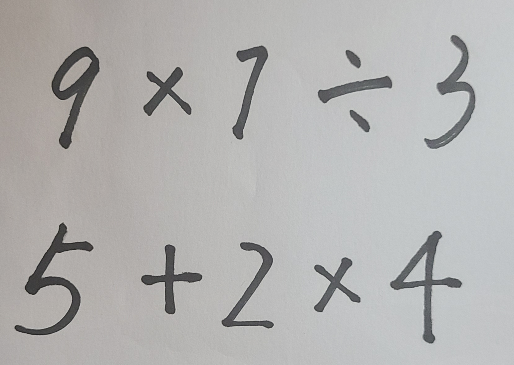 9 × 7 ÷ 3
5 + 2 × 4